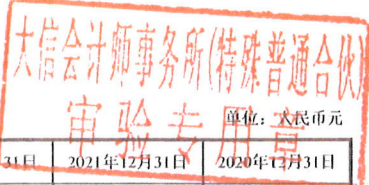 大信会计师事务所(特殊普通合伙)
审验专用章
单位：人民币元
31日 2021年12月31日 2020年12月31日